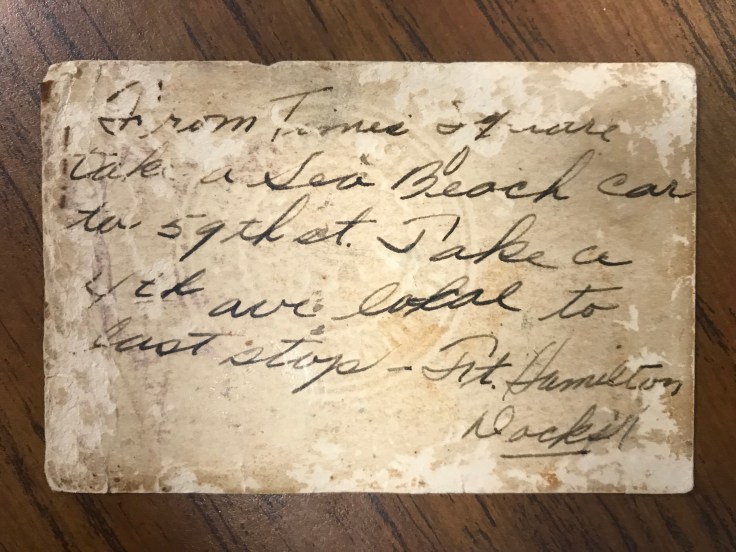 From Times Square
take a Sea Beach car
to 59th st. Take a
4th ave local to
last stop - Ft. Hamilton
Docks